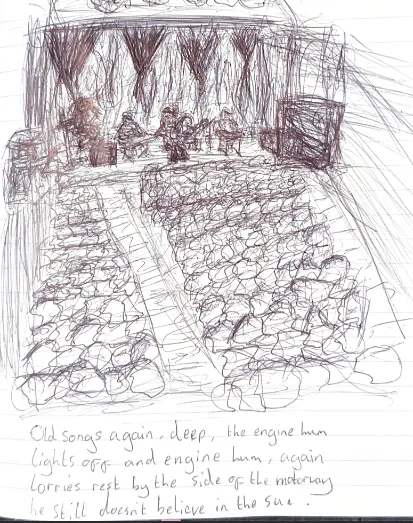 Old songs again, deep, the engine hum
lights off and engine hum, again
Lorries rest by the side of the motorway
he still doesn't believe in the sun.